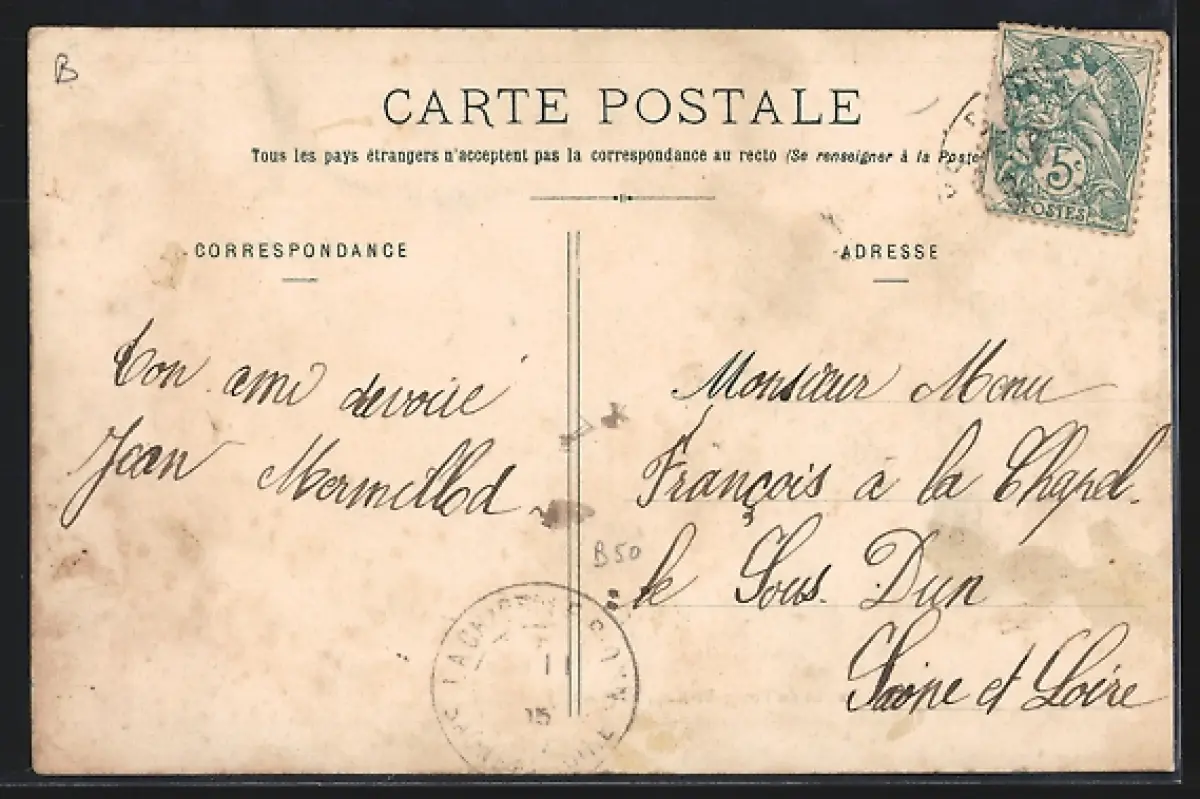 B
CARTE POSTALE
Tous les pays étrangers n'acceptent pas la correspondance au recto (Se renseigner à la Poste
5c
POSTES
CORRESPONDANCE
ADRESSE
Ton ami devoué
Jean Mermillod
Monsieur Menu
François à la Chapel-
le Sous. Dun
Saône et Loire
B50
LA CHAPELLE-S-DUN
11